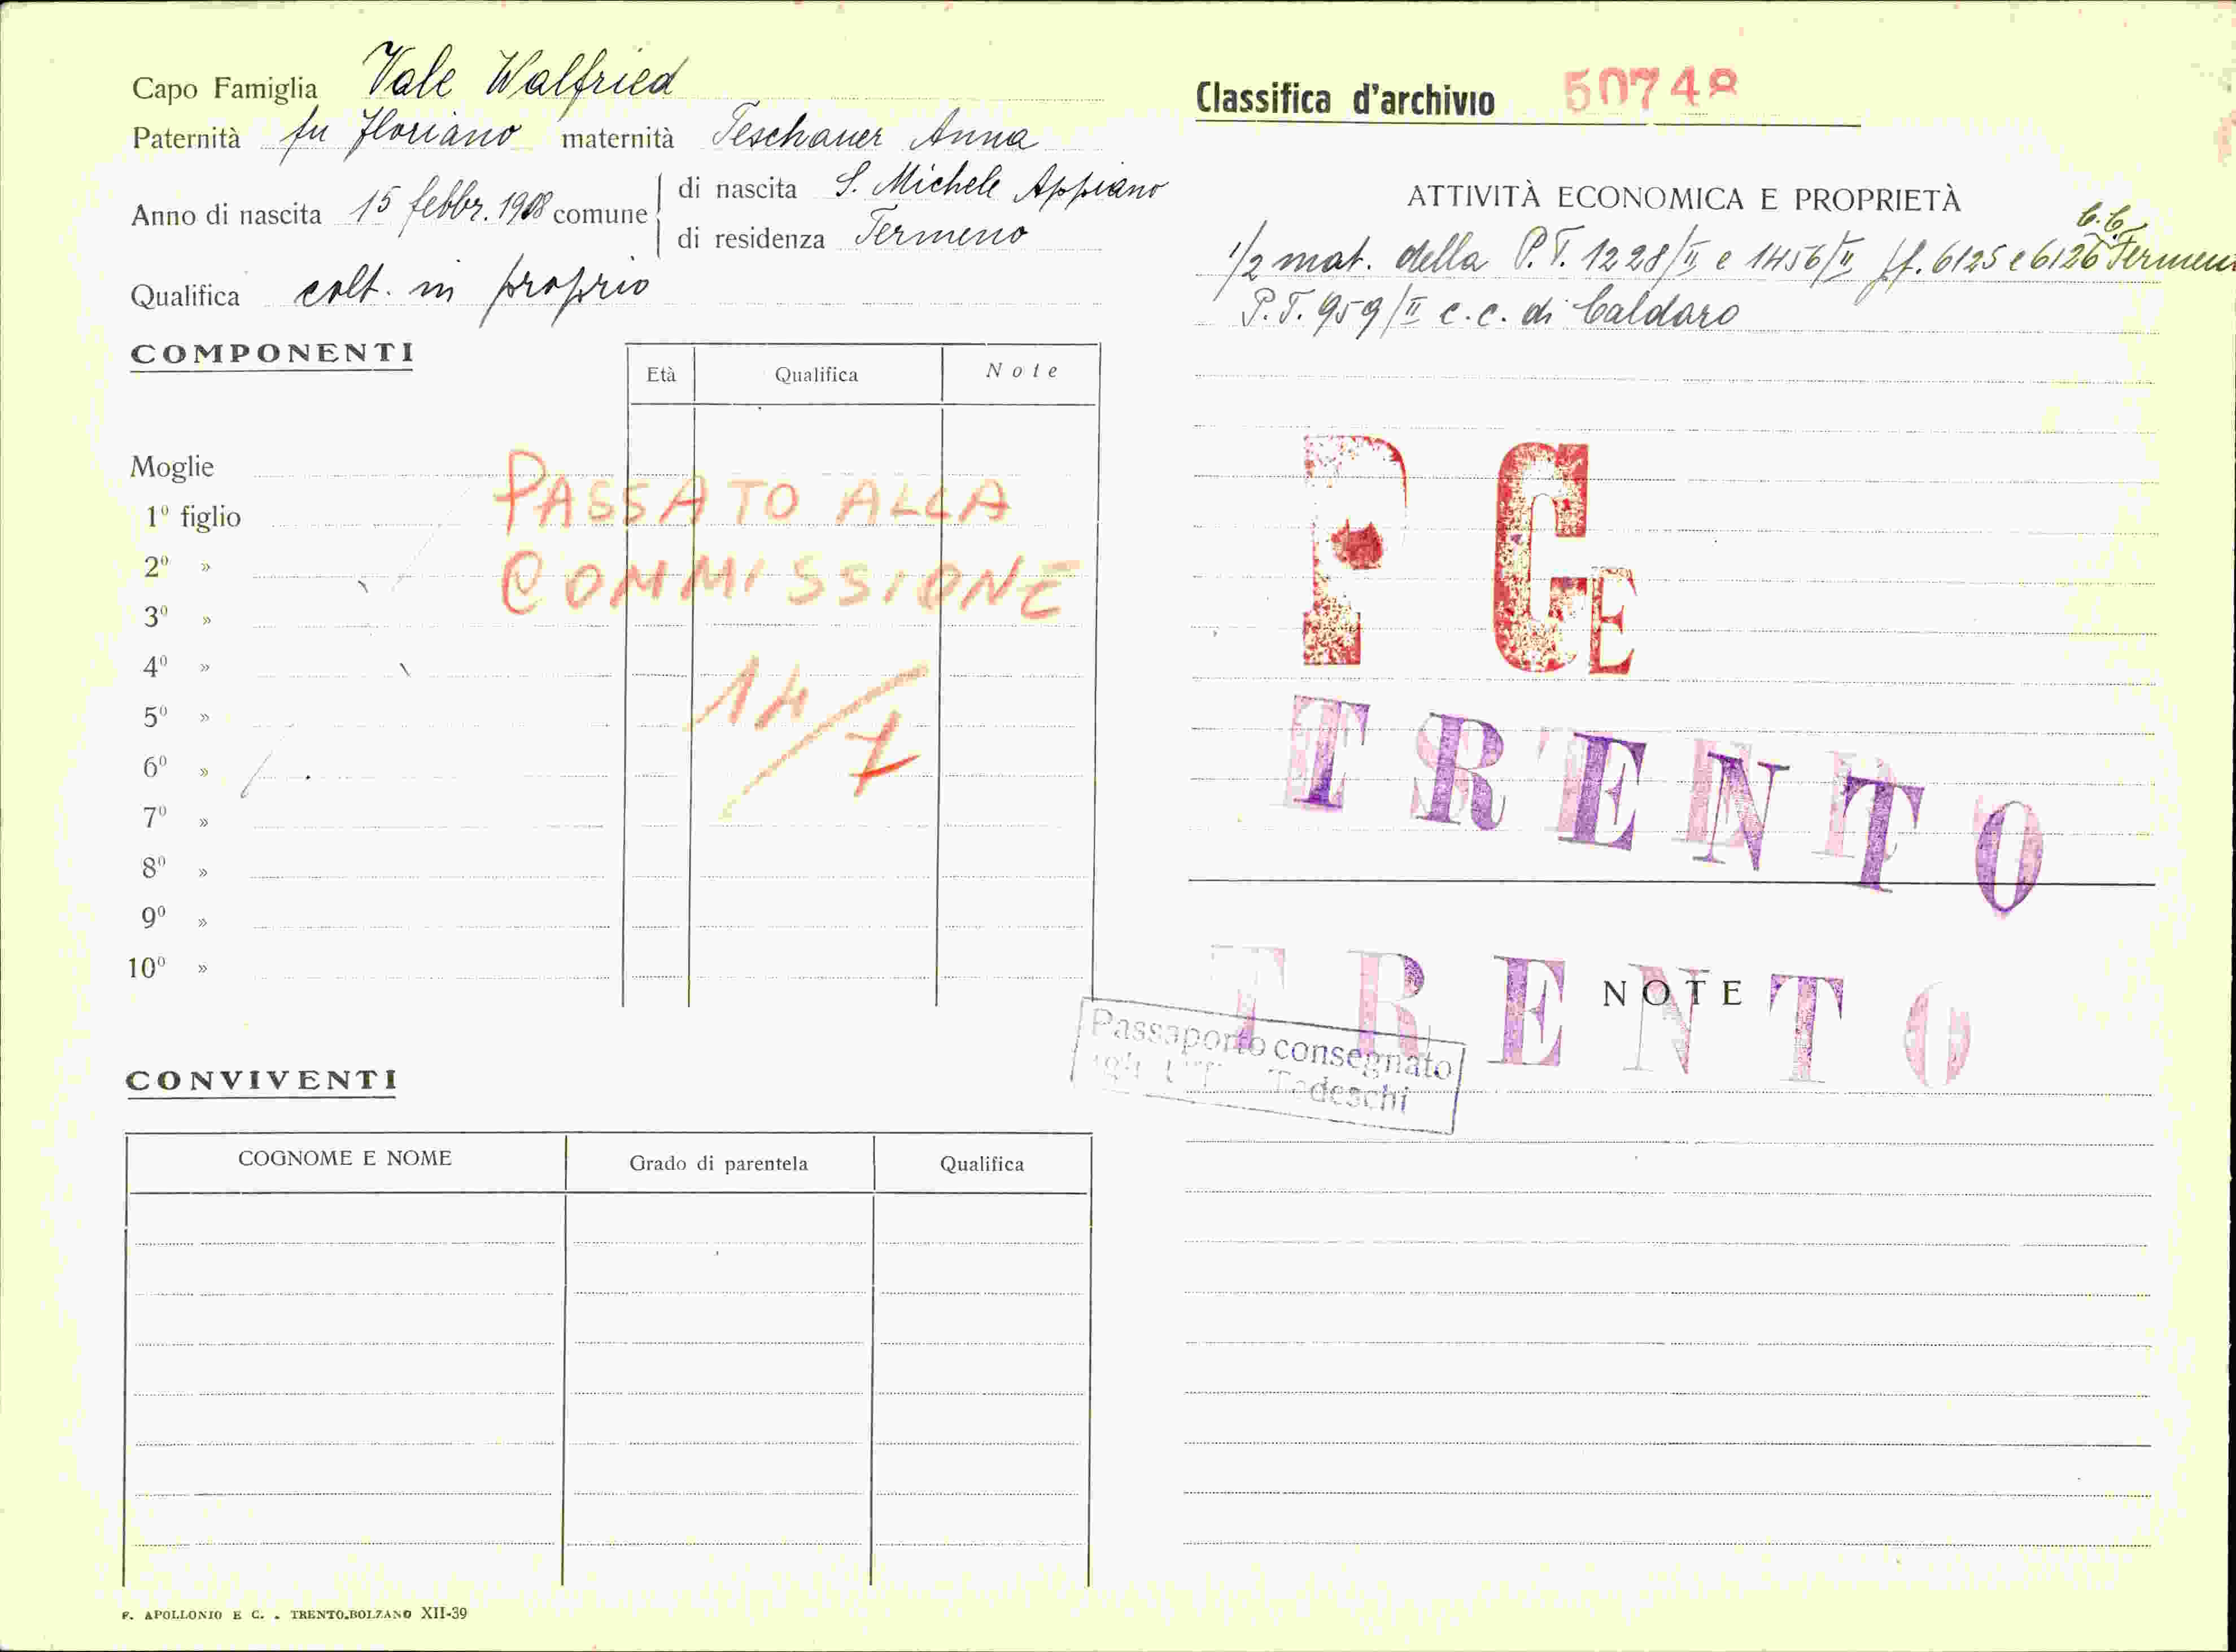 Capo Famiglia Vale Walfried
Paternità fu Floriano maternità Teschauer Anna
Anno di nascita 15 febbr. 1908 comune di nascita S. Michele Appiano
di residenza Termeno
Qualifica colt. in proprio
COMPONENTI
Età Qualifica Note
Moglie
1º figlio
2º »
3º »
4º »
5º »
6º »
7º »
8º »
9º »
10º »
PASSATO ALLA
COMMISSIONE
14/7
CONVIVENTI
COGNOME E NOME Grado di parentela Qualifica
F. APOLLONIO E C. - TRENTO-BOLZANO XII-39
Classifica d'archivio 50748
ATTIVITÀ ECONOMICA E PROPRIETÀ
1/2 mat. della P.T. 1228/II e 1456/II ff. 6125 e 6126 C.C. Termen
P.T. 959/II c.c. di Caldaro
P GE
TRENTO
TRENTO
NOTE
Passaporto consegnato
Tedeschi